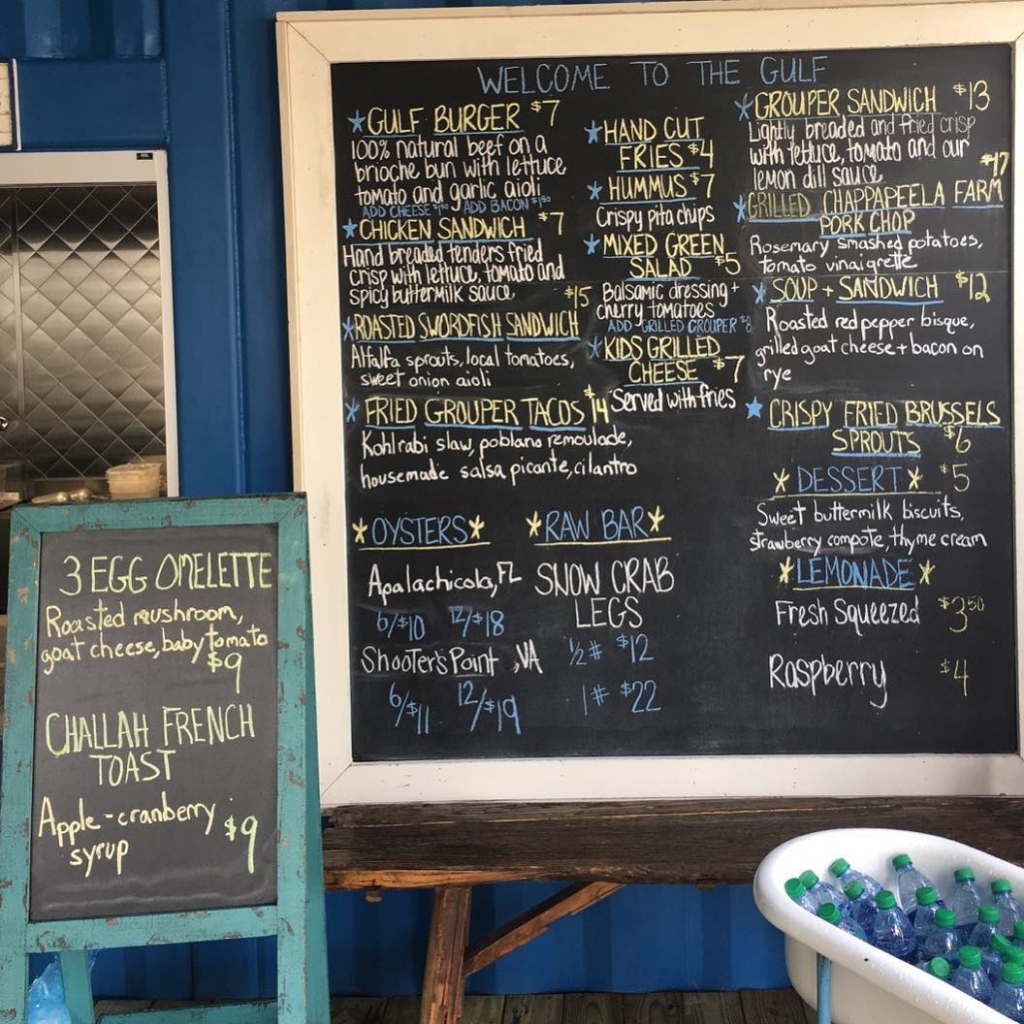 WELCOME TO THE GULF
GULF BURGER $7
100% natural beef on a
brioche bun with lettuce
tomato and garlic aioli
ADD CHEESE ADD BACON
CHICKEN SANDWICH $7
Hand breaded tenders fried
crisp with lettuce, tomato and
spicy buttermilk sauce
$15
ROASTED SWORDFISH SANDWICH
Alfalfa sprouts, local tomatoes,
sweet onion aioli
FRIED GROUPER TACOS $14
Kohlrabi slaw, poblano remoulade,
housemade salsa picante, cilantro
HAND CUT
FRIES $4
HUMMUS $7
Crispy pita chips
MIXED GREEN
SALAD $5
Balsamic dressing +
cherry tomatoes
ADD GRILLED GROUPER $8
KIDS GRILLED
CHEESE $7
Served with fries
GROUPER SANDWICH $13
Lightly breaded and fried crisp
with lettuce, tomato and our
lemon dill sauce
$17
GRILLED CHAPPAPEELA FARM
PORK CHOP
Rosemary smashed potatoes,
tomato vinaigrette
SOUP + SANDWICH $12
Roasted red pepper bisque,
grilled goat cheese + bacon on
rye
CRISPY FRIED BRUSSELS
SPROUTS $6
DESSERT $5
Sweet buttermilk biscuits,
strawberry compote, thyme cream
LEMONADE
Fresh Squeezed $3.50
Raspberry $4
OYSTERS
Apalachicola, FL
6/$10 12/$18
Shooter's Point, VA
6/$11 12/$19
RAW BAR
SNOW CRAB
LEGS
1/2 # $12
1 # $22
3 EGG OMELETTE
Roasted mushroom,
goat cheese, baby tomato
$9
CHALLAH FRENCH
TOAST
Apple-cranberry
syrup $9